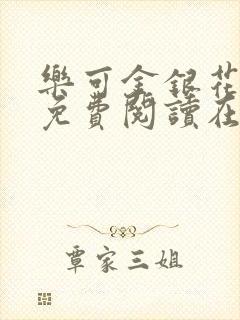 樂可金銀花
免費閱讀在
覃家三姐